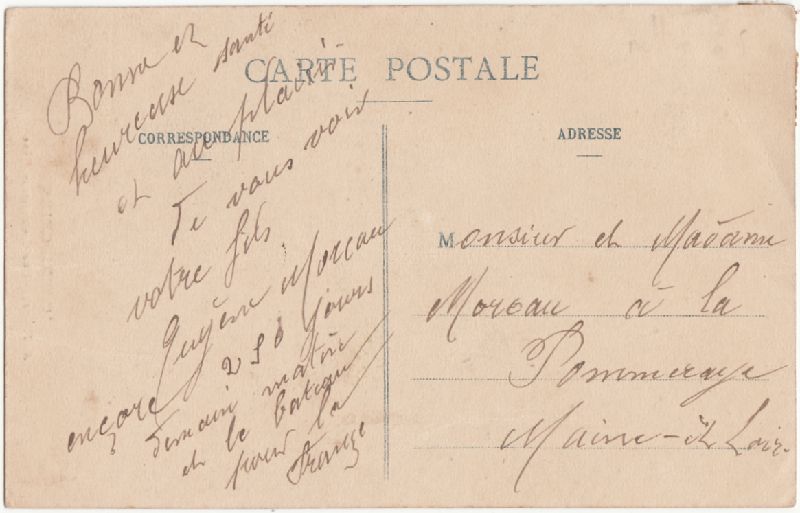 CARTE POSTALE
CORRESPONDANCE
ADRESSE
Bonne et
heureuse santé
et au plaisir
De vous voir
votre fils
Eugène Moreau
encore 250 jours
Demain matin
et le bateau
pour la
France
Monsieur et Madame
Moreau à la
Pommeraye
Maine-et Loir